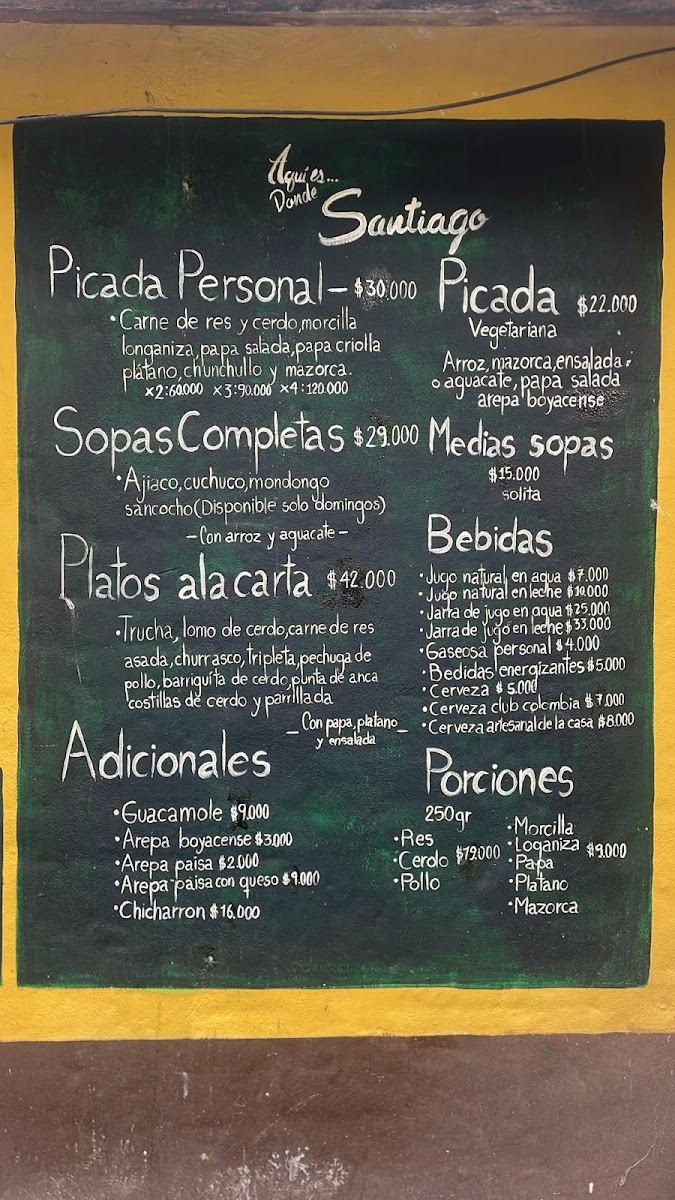 Aqui es...
Donde
Santiago
Picada Personal - $30.000
• Carne de res y cerdo, morcilla
longaniza, papa salada, papa criolla
plátano, chunchullo y mazorca.
x2:60.000 x3:90.000 x4:120.000
Picada $22.000
Vegetariana
Arroz, mazorca, ensalada,
o aguacate, papa salada
arepa boyacense
Sopas Completas $29.000
• Ajiaco, cuchuco, mondongo
sancocho (Disponible solo domingos)
- Con arroz y aguacate -
Medias sopas
$15.000
solita
Platos a la carta $42.000
• Trucha, lomo de cerdo, carne de res
asada, churrasco, tripleta, pechuga de
pollo, barriguita de cerdo, punta de anca
costillas de cerdo y parrillada
- Con papa, platano -
y ensalada
Bebidas
• Jugo natural en agua $7.000
• Jugo natural en leche $10.000
• Jarra de jugo en agua $25.000
• Jarra de jugo en leche $33.000
• Gaseosa personal $4.000
• Bedidas energizantes $5.000
• Cerveza $5.000
• Cerveza club colombia $7.000
• Cerveza artesanal de la casa $8.000
Adicionales
• Guacamole $9.000
• Arepa boyacense $3.000
• Arepa paisa $2.000
• Arepa paisa con queso $9.000
• Chicharron $16.000
Porciones
250gr
• Res
• Cerdo $79.000
• Pollo
• Morcilla
• Loganiza $9.000
• Papa
• Platano
• Mazorca